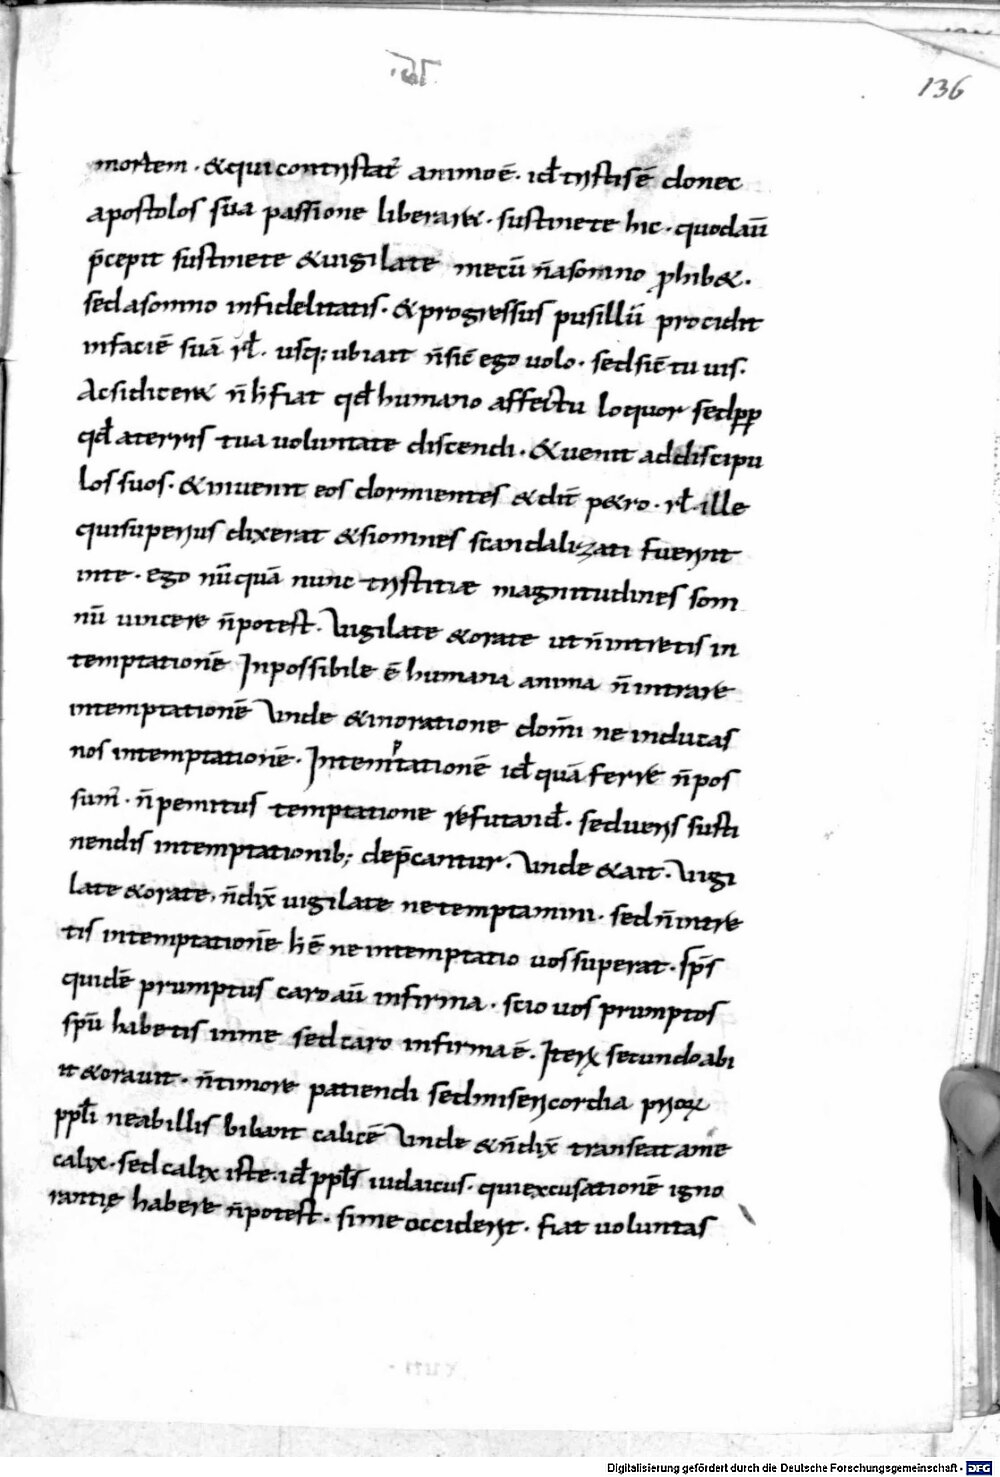 136
mortem · & qui contristat̄ animo ē · id̄ tristis ē donec
apostolos sūa passione liberar& · sustinete hic · quod aū
p̄cepit sustinete & uigilate mecū n̄ a somno phib& ·
sed a somno infidelitatis · & progressus pusillū procidit
in faciē suā rł · usq; ubi ait n̄ sic̄ ego uolo · sed sic̄ tu uis ·
Ac si dicer& n̄ h̄ fiat qd̄ humano affectu loquor sed pp
qd̄ a terris tua uoluntate discendi · & uenit ad discipu
los suos · & inuenit eos dormientes & dix̄ p&ro · rł ille
qui superius dixerat & si omnes scandalizati fuerint
in te · ego nū quā nunc tristitiæ magnitudines som
nū uincere n̄ potest · Uigilate & orate ut n̄ intretis in
temptationē Inpossibile ē humana anima n̄ intrare
in temptationē Unde & in oratione dom̄i ne inducas
nos in temptationē · In temptationē id̄ quā ferre n̄ pos
sum̄ · n̄ penitus temptatione refutand̄ · sed uers susti
nendis in temptationib; dep̄cantur · Unde & ait · Uigi
late & orate · n̄ dix̄ uigilate ne temptamini · sed n̄ intre
tis in temptationē h̄ ē ne in temptatio uos superat · sp̄s
quidē prumptus caro aū infirma · scio uos prumptos
spū habetis in me sed caro infirma ē · Iterꝝ secundo abi
it & orauit · n̄ timore patiendi sed misericordia priorꝝ
ppłi ne ab illis bibant calicē Unde & n̄ dix̄ transeat a me
calix · sed calix iste · id̄ ppłs iudaicus · qui excusationē igno
rantię habere n̄ potest · si me occiderit · fiat uoluntas
Digitalisierung gefördert durch die Deutsche Forschungsgemeinschaft - DFG